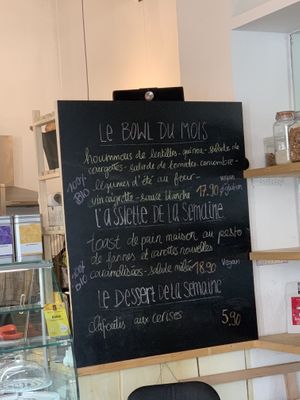 LE BOWL DU MOIS
hoummous de lentilles - quinoa - salade de
courgettes - salade de tomates, concombre -
légumes d'été au four -
vinaigrette - sauce blanche 17.90
vegan
100% BIO
L'ASSIETTE DE LA SEMAINE
toast de pain maison au pesto
de fannes et carottes nouvelles
caramélisées - salade mêlée 18.90 vegan
100% BIO
LE DESSERT DE LA SEMAINE
Clafoutis aux cerises 5,90